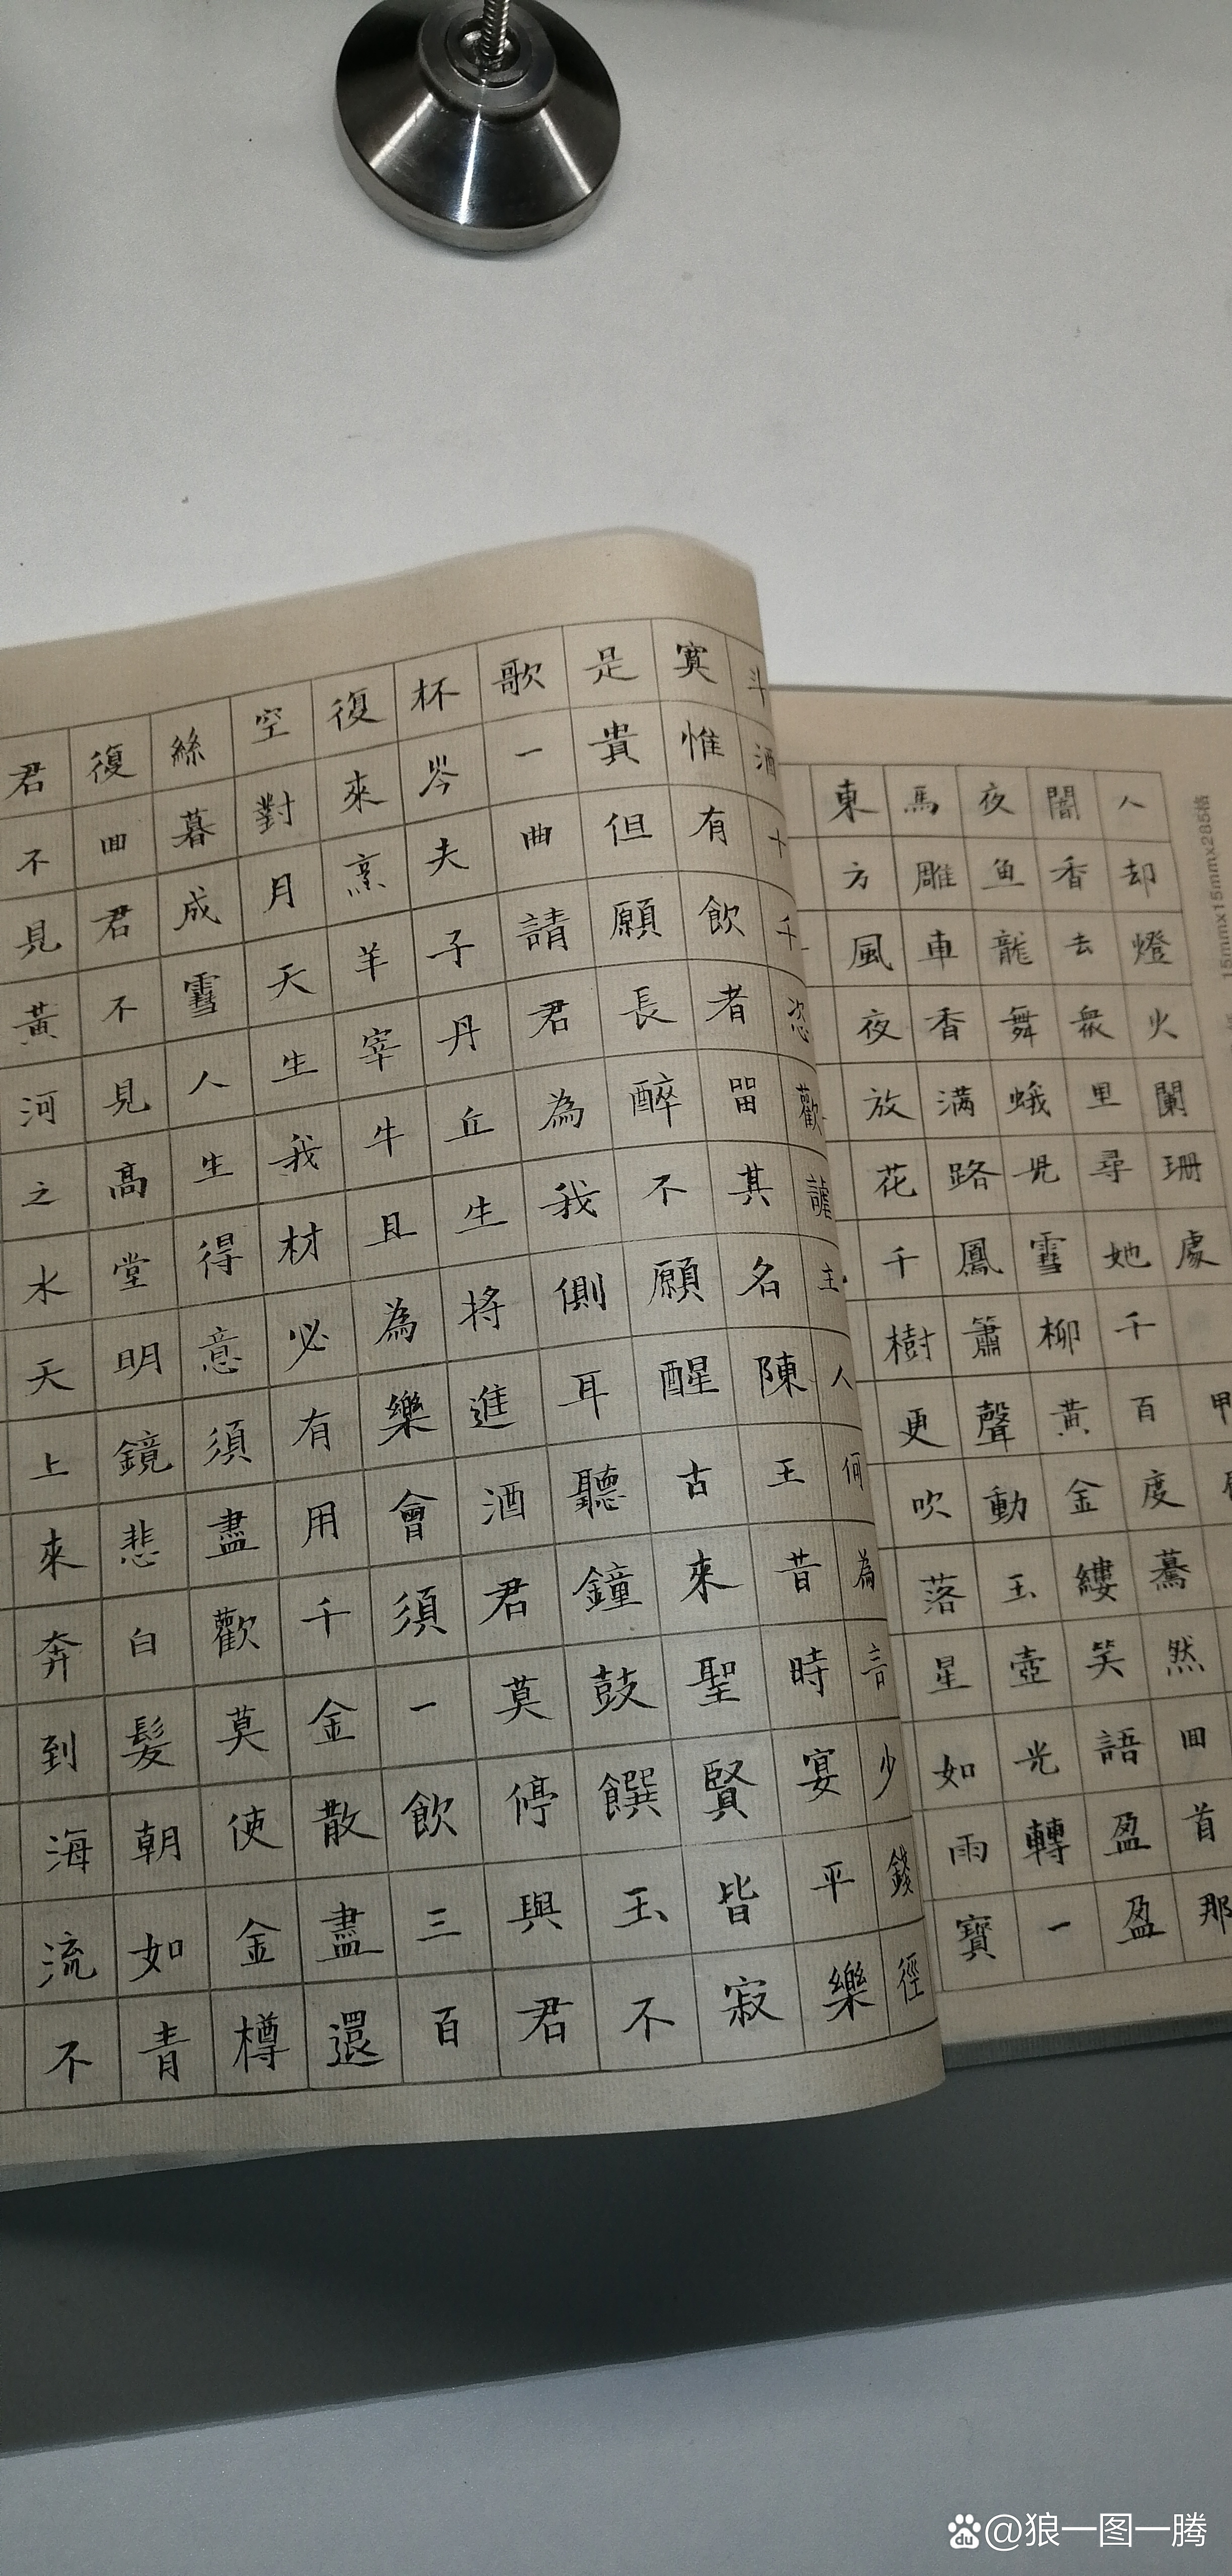 君不見黃河之水天上來奔到海流不
復囬君不見高堂明鏡悲白髮朝如青
絲暮成雪人生得意須盡歡莫使金樽
空對月天生我材必有用千金散盡還
復來烹羊宰牛且為樂會須一飲三百
杯岑夫子丹丘生將進酒君莫停與君
歌一曲請君為我側耳聽鐘鼓饌玉不
是貴但願長醉不願醒古來聖賢皆寂
寞惟有飲者畱其名陳王昔時宴平樂
斗酒十千恣歡謔主人何為言少錢徑
東方風夜放花千樹更吹落星如雨寶
馬雕車香满路鳳簫聲動玉壺光轉一
夜鱼龍舞蛾児雪柳黃金縷笑語盈盈
闇香去衆里尋她千百度驀然囬首那
人却燈火闌珊處
甲
15mmx15mmx285格
du @狼一图一腾